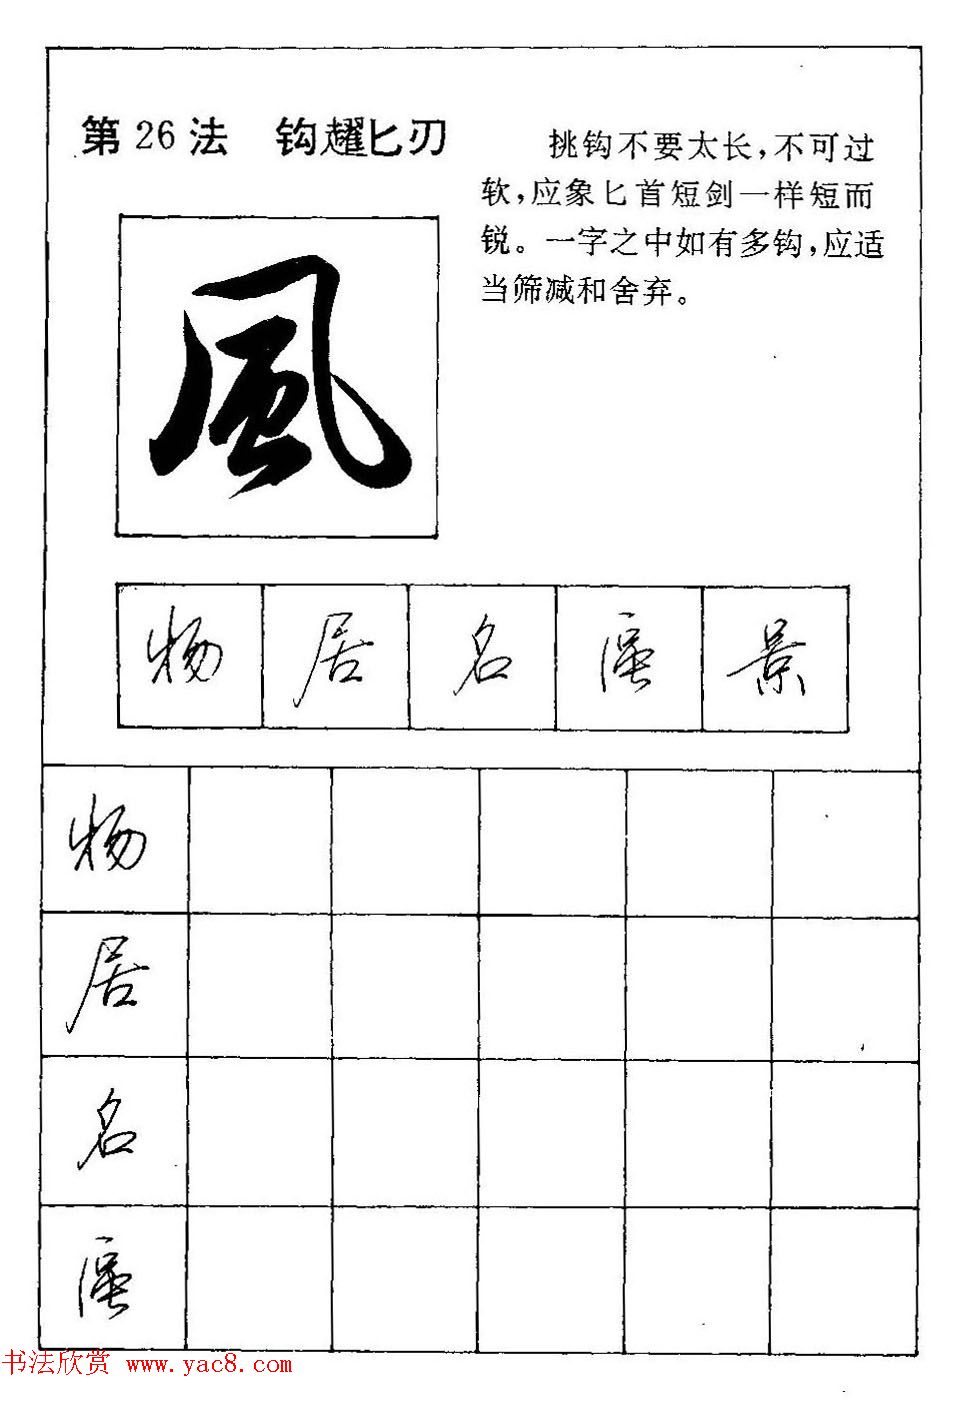 第26法 钩趯匕刃
挑钩不要太长，不可过
软，应象匕首短剑一样短而
锐。一字之中如有多钩，应适
当筛减和舍弃。
風
物 居 名 景
物
居
名
书法欣赏 www.yac8.com